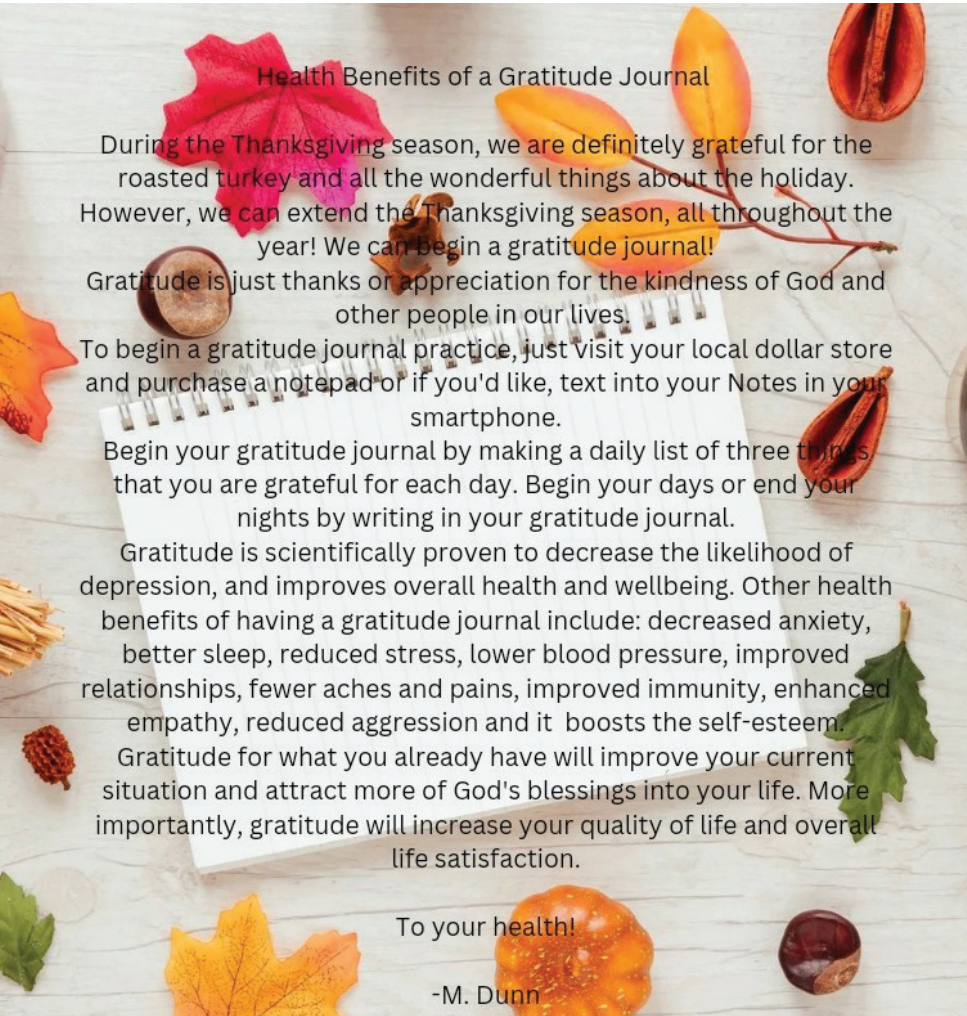 Health Benefits of a Gratitude Journal
During the Thanksgiving season, we are definitely grateful for the
roasted turkey and all the wonderful things about the holiday.
However, we can extend the Thanksgiving season, all throughout the
year! We can begin a gratitude journal!
Gratitude is just thanks or appreciation for the kindness of God and
other people in our lives.
To begin a gratitude journal practice, just visit your local dollar store
and purchase a notepad or if you'd like, text into your Notes in your
smartphone.
Begin your gratitude journal by making a daily list of three things
that you are grateful for each day. Begin your days or end your
nights by writing in your gratitude journal.
Gratitude is scientifically proven to decrease the likelihood of
depression, and improves overall health and wellbeing. Other health
benefits of having a gratitude journal include: decreased anxiety,
better sleep, reduced stress, lower blood pressure, improved
relationships, fewer aches and pains, improved immunity, enhanced
empathy, reduced aggression and it  boosts the self-esteem.
Gratitude for what you already have will improve your current
situation and attract more of God's blessings into your life. More
importantly, gratitude will increase your quality of life and overall
life satisfaction.
To your health!
-M. Dunn